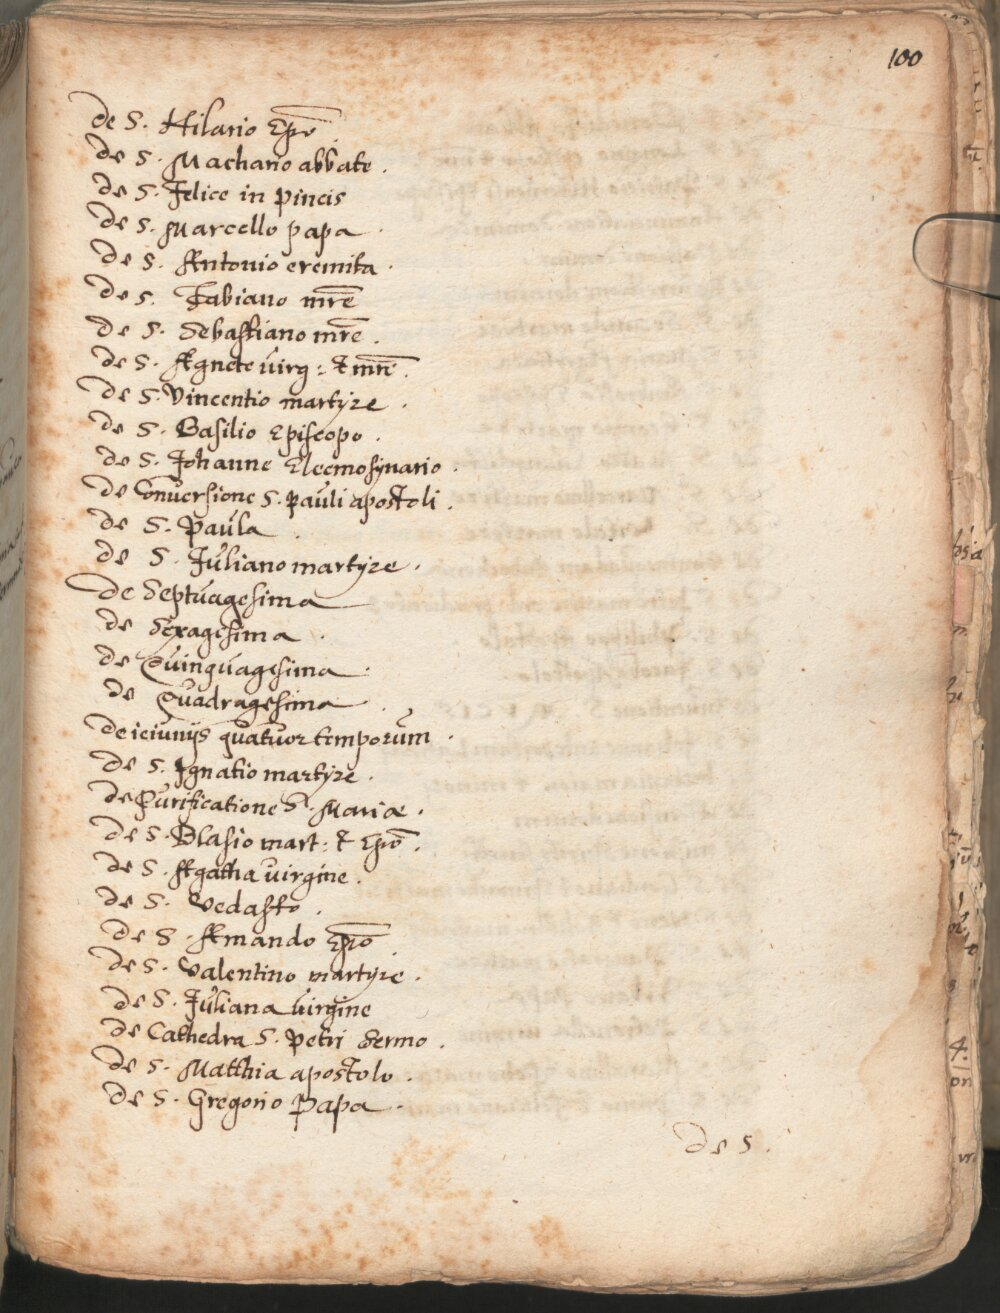 100
de S. Hilario Ep̄o
de S. Machario abbate.
de S. Felice in pincis
de S. Marcello papa.
de S. Antonio eremita.
de S. Fabiano mr̄e
de S. Sebastiano mr̄e.
de S. Agnete virg: & mr̄e.
de S. Vincentio martyre.
de S. Basilio Episcopo.
de S. Johanne Eleemosynario.
de Conversione S. pauli apostoli.
de S. Paula
de S. Juliano martyre.
de Septuagesima
de Sexagesima.
de Quinquagesima.
de Quadragesima.
de ieiuniis quatuor temporum.
de S. Ignatio martyre.
de Purificatione S. Mariæ.
de S. Blasio mart: & Ep̄o.
de S. Agatha virgine.
de S. Vedasto.
de S. Amando Ep̄o.
de S. Valentino martyre.
de S. Juliana virgine
de Cathedra S. Petri Sermo.
de S. Matthia apostolo.
de S. Gregorio Papa.
de S.